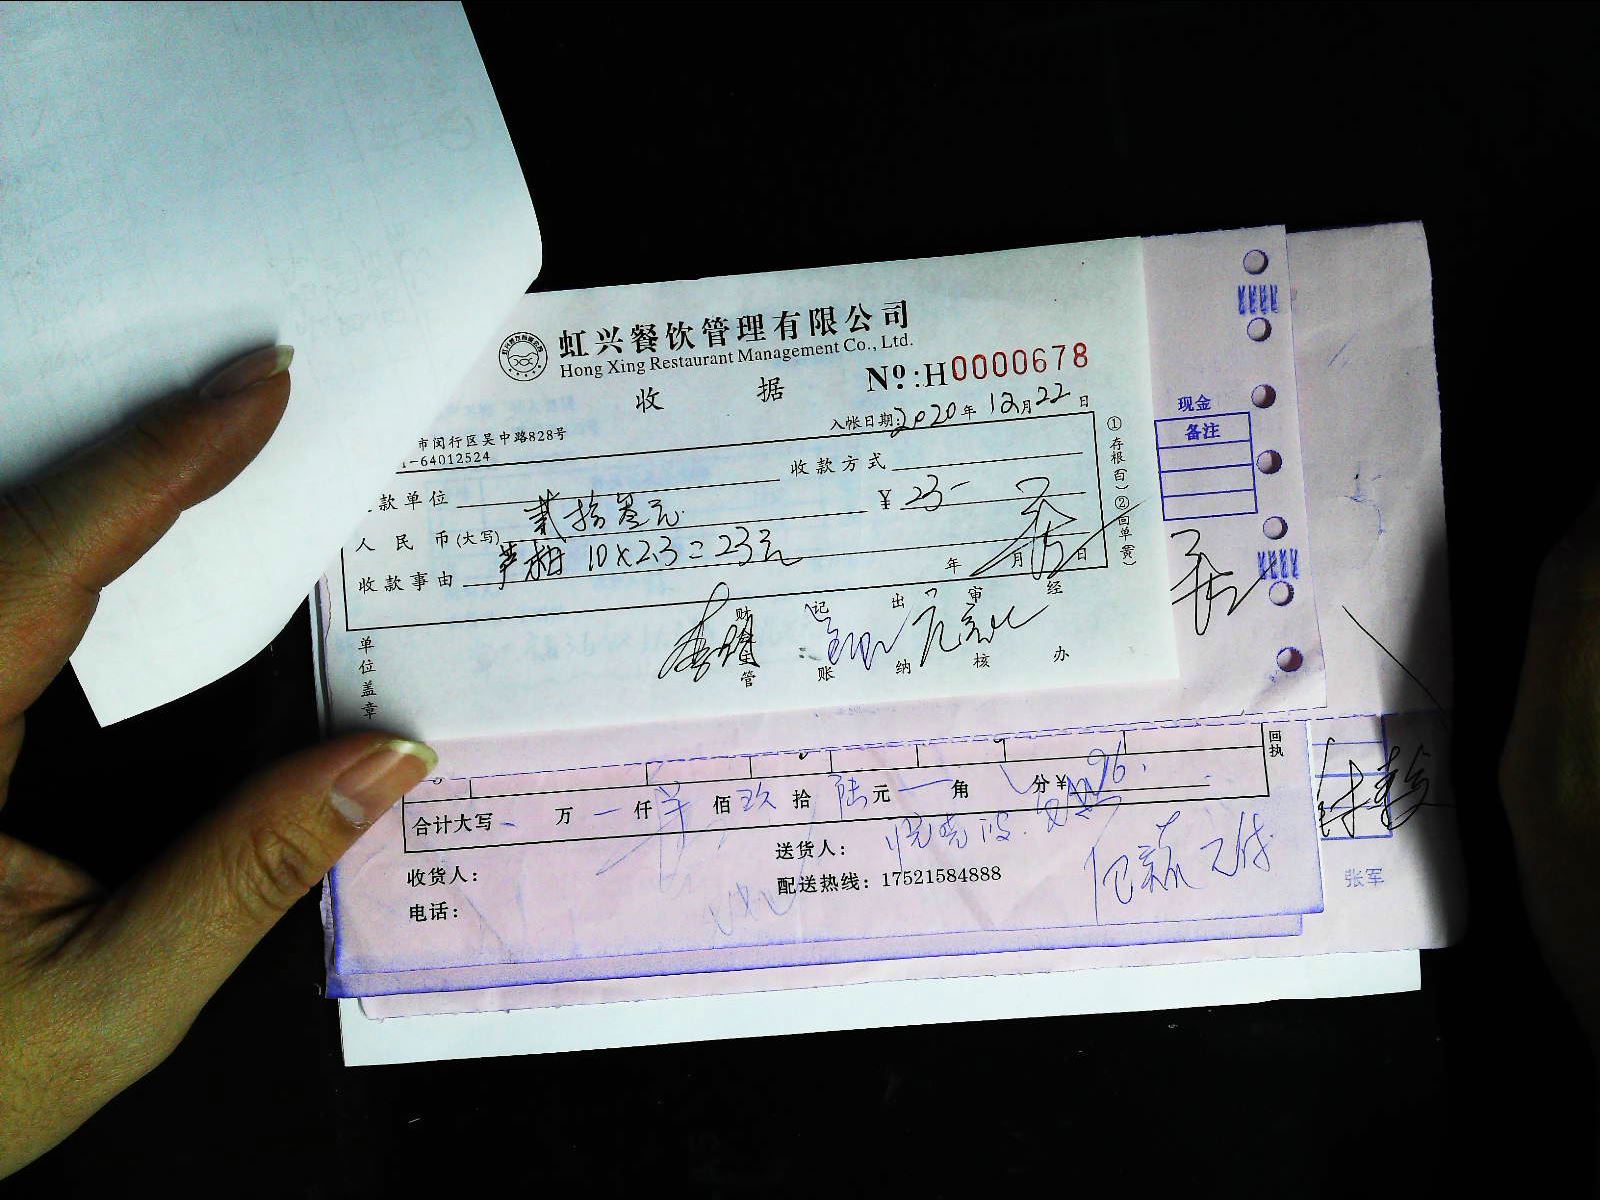 虹兴餐饮管理有限公司
Hong Xing Restaurant Management Co., Ltd.
收 据
№:H0000678
市闵行区吴中路828号
1-64012524
入帐日期:2020年12月22日
款单位
收款方式
人民币(大写) 贰拾叁元
¥ 23-
收款事由 芦柑 10×2.3=23元
年 月 日
单位盖章
财
管
记账
出纳
审核
经办
①存根(白)②回单(黄)
现金
备注
回执
合计大写 万 一 仟 佰 玖 拾 陆 元 一 角 分 ¥ 96.
收货人:
送货人:
电话:
配送热线: 17521584888
张军